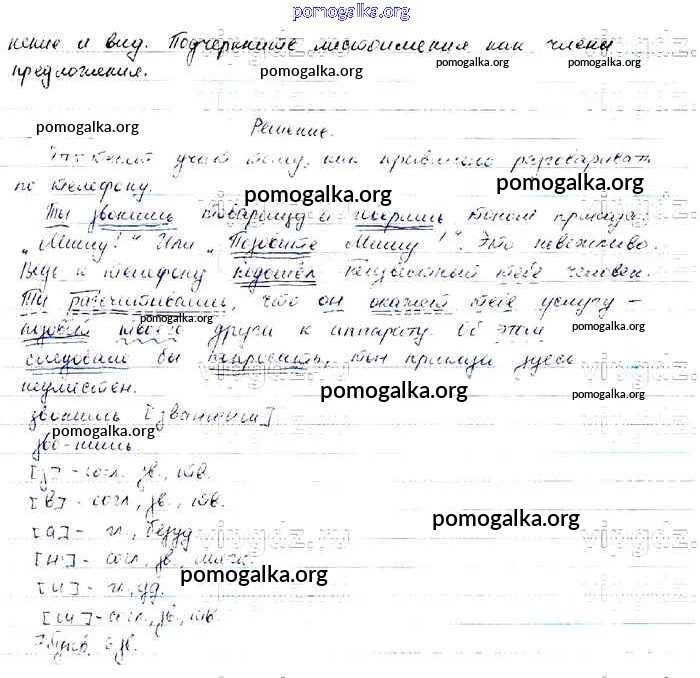 pomogalka.org
нение и вид. Подчеркните местоимения как члены
предложения.
pomogalka.org pomogalka.org pomogalka.org
pomogalka.org
Решение.
учит тому, как правильно разговаривать
по телефону.
pomogalka.org pomogalka.org
Ты звонишь товарищу и говоришь тоном приказа:
„Мишу!" Или „Позовите Мишу!". Это невежливо.
Ведь к телефону подошёл неизвестный тебе человек.
Ты рассчитываешь, что он окажет тебе услугу –
pomogalka.org pomogalka.org
позовёт твоего друга к аппарату. Об этом
следовало бы попросить, тон приказа здесь
неуместен.
pomogalka.org pomogalka.org
звонишь [званиш]
pomogalka.org
зво-нишь.
[з] - согл., зв., тв.
[в] - согл., зв., тв.
pomogalka.org
[а] - гл., безуд
[н'] - согл., зв., мягк.
pomogalka.org
[и] - гл., уд.
[ш] - согл., зв., тв.
7 букв, 6 зв.